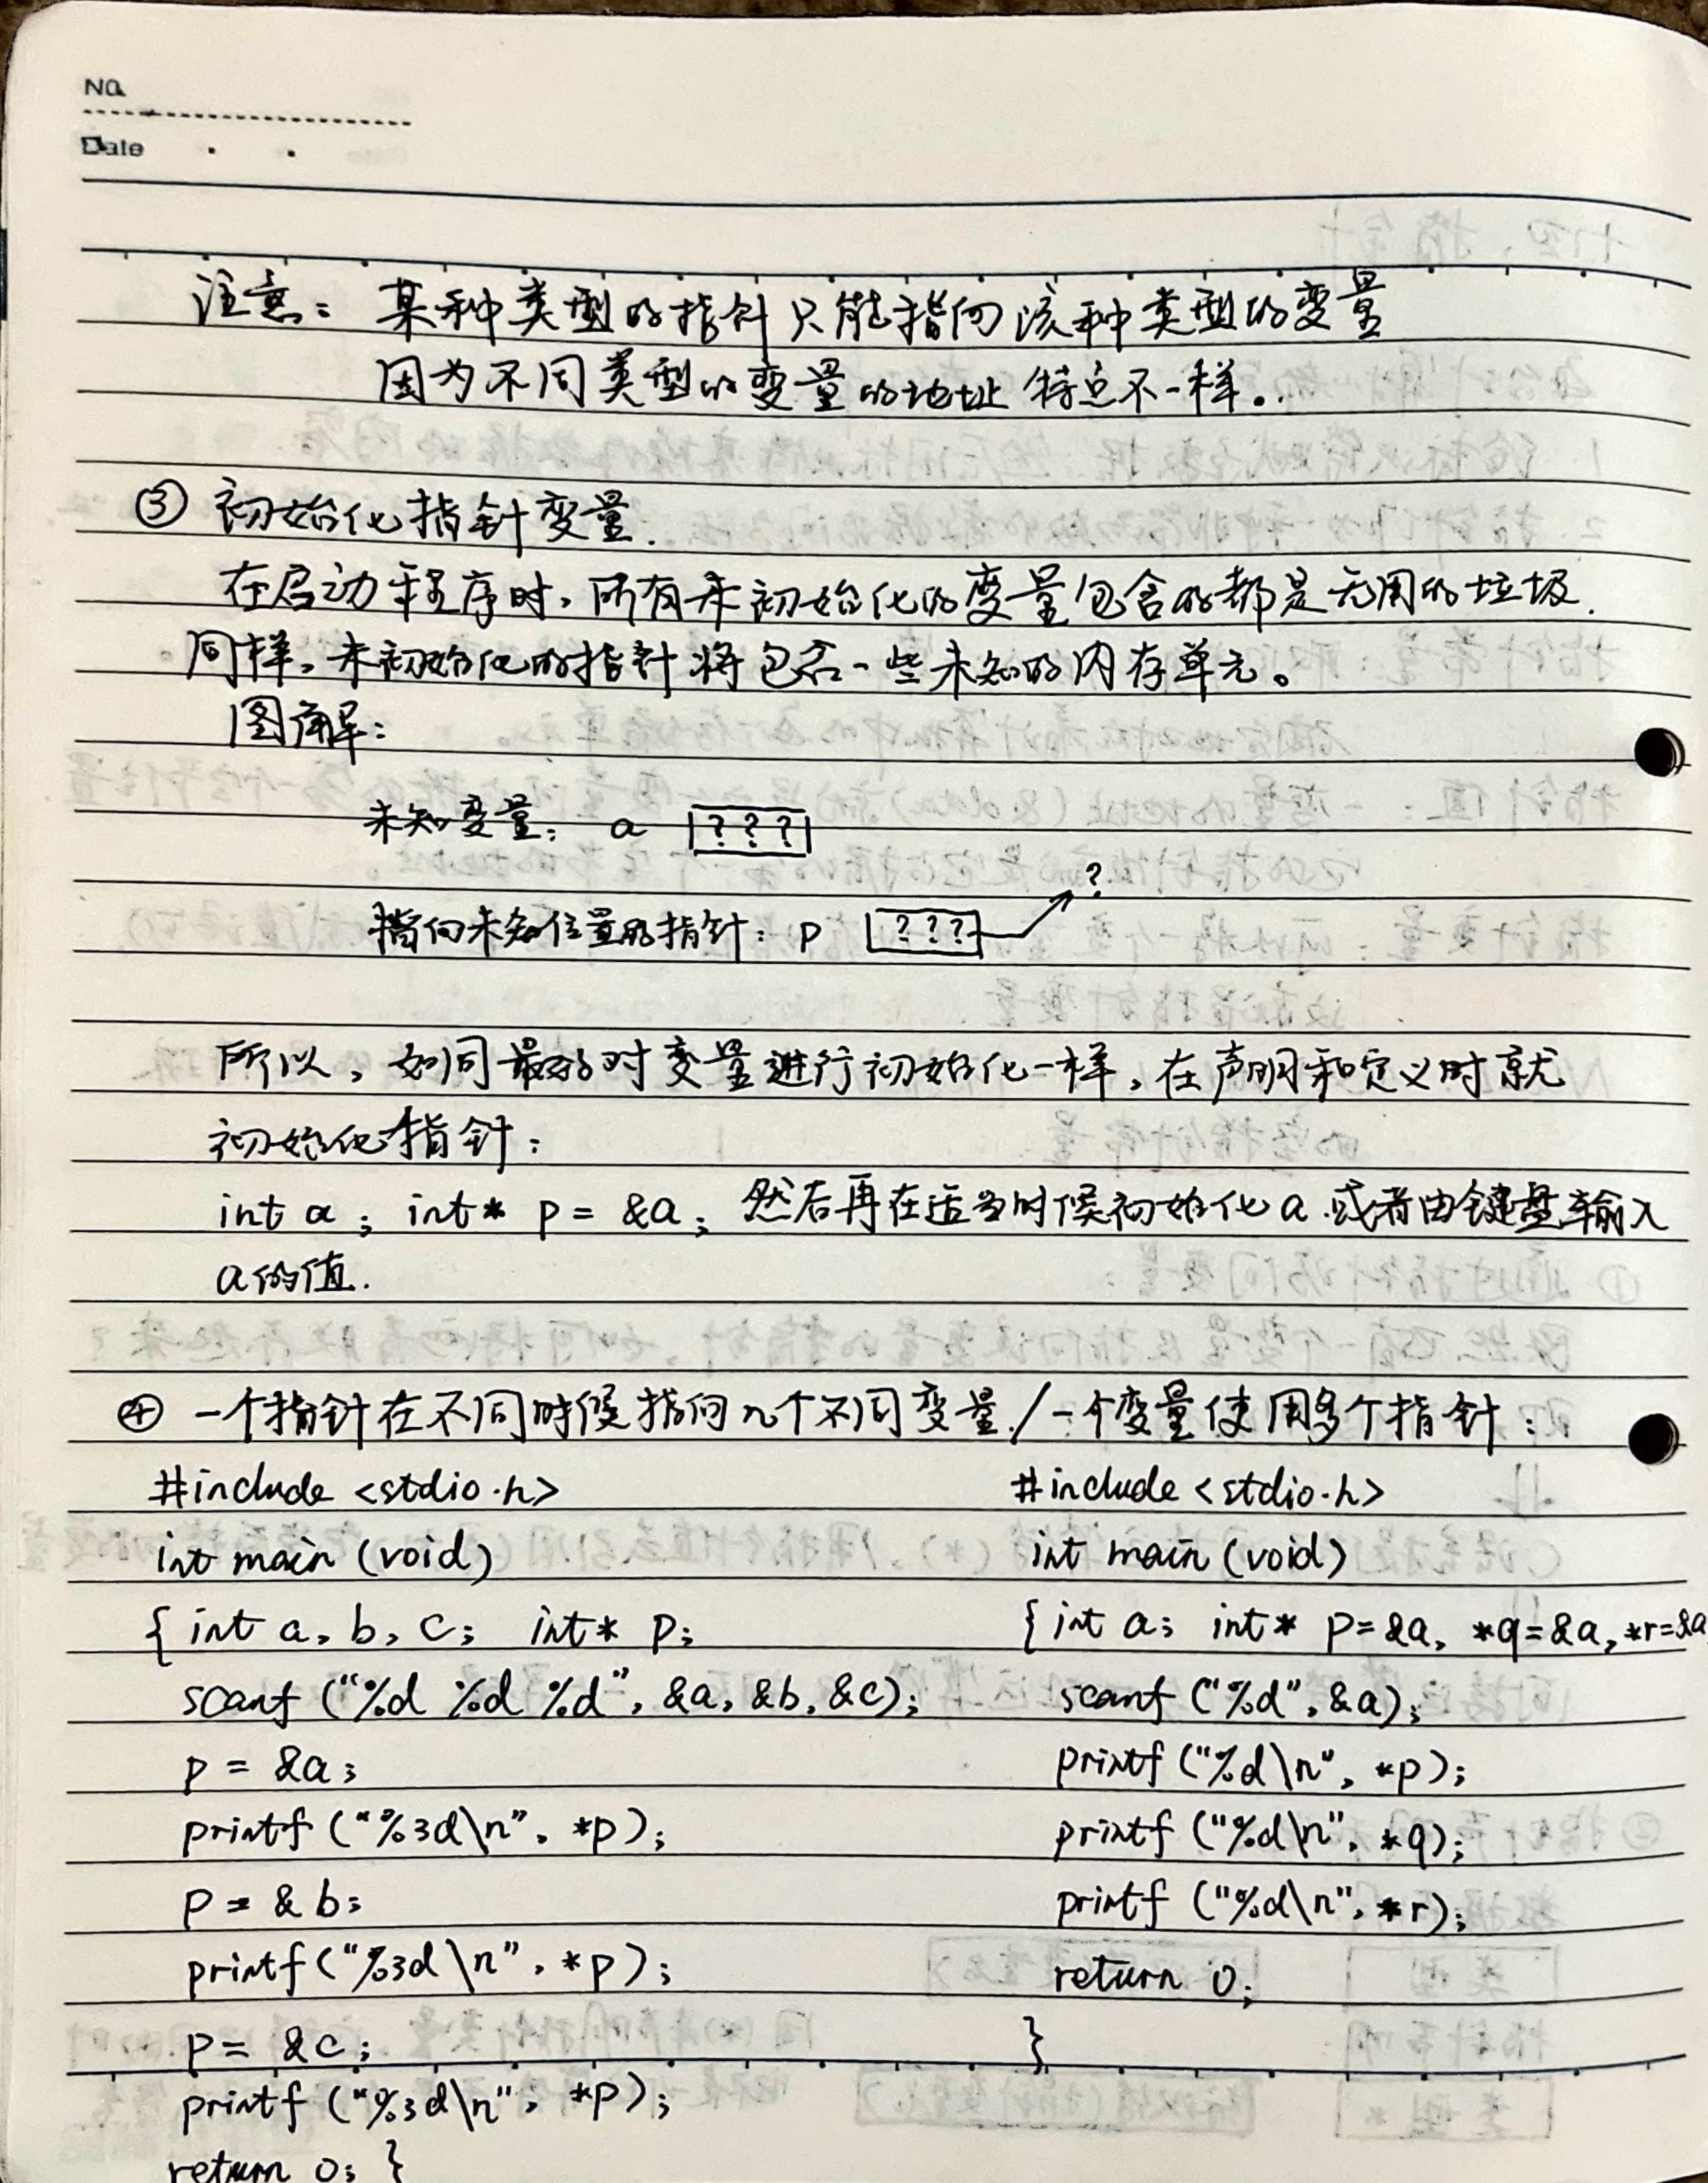 No.
Date
注意: 某种类型的指针只能指向该种类型的变量
因为不同类型的变量的地址特点不一样。
③ 初始化指针变量.
在启动程序时,所有未初始化的变量包含的都是无用的垃圾.
同样,未初始化的指针将包含一些未知的内存单元。
图解:
未知变量: a ???
?
指向未知位置的指针: p ???
所以,如同最好对变量进行初始化一样,在声明和定义时就
初始化指针:
int a; int* p = &a; 然后再在适当时候初始化a.或者由键盘输入
a的值.
④ 一个指针在不同时候指向几个不同变量./一个变量使用多个指针:
#include <stdio.h>
int main (void)
{ int a, b, c; int* p;
scanf ("%d %d %d", &a, &b, &c);
p = &a;
printf ("%3d\n", *p);
p = &b;
printf ("%3d\n", *p);
p = &c;
printf ("%3d\n", *p);
return 0; }
#include <stdio.h>
int main (void)
{ int a; int* p=&a, *q=&a, *r=&a
scanf ("%d", &a);
printf ("%d\n", *p);
printf ("%d\n", *q);
printf ("%d\n", *r);
return 0;
}